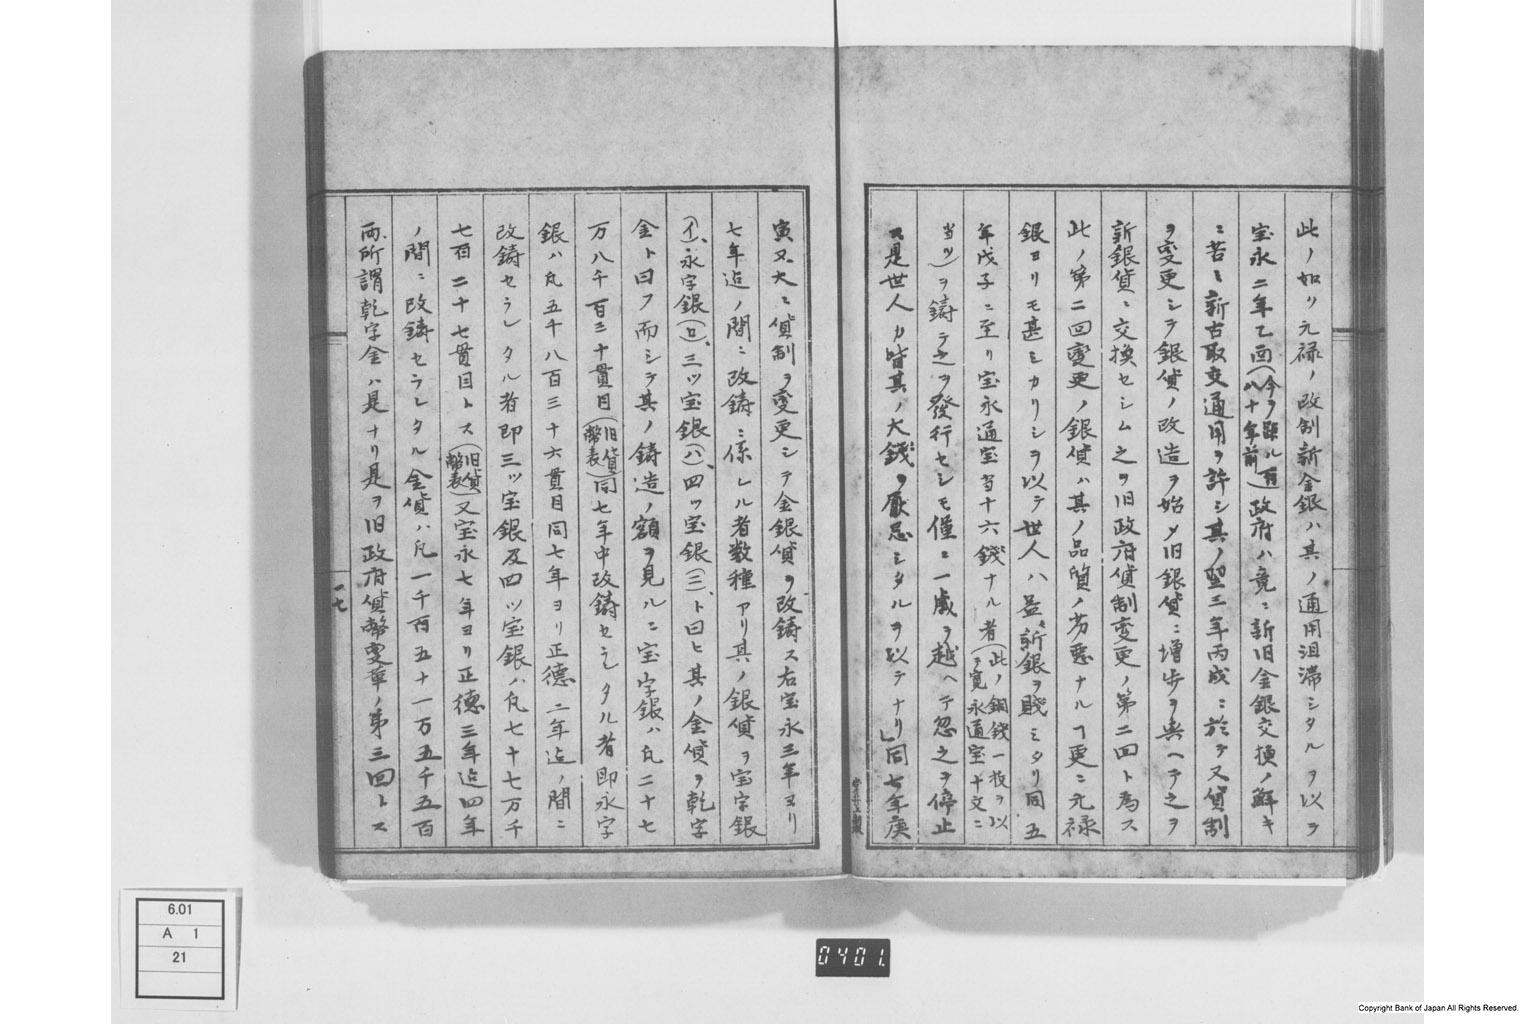 此ノ如リ元禄ノ改制新金銀ハ其ノ通用沮滞シタルヲ以テ
宝永二年乙酉(今ヲ距ル百八十年前)政府ハ竟ニ新旧金銀交換ノ鮮キ
ニ苦ミ新古取交通用ヲ許シ其ノ翌三年丙戌ニ於テ又貨制
ヲ変更シテ銀貨ノ改造ヲ始メ旧銀貨ニ増歩ヲ與ヘテ之ヲ
新銀貨ニ交換セシム之ヲ旧政府貨制変更ノ第二回ト為ス
此ノ第二回変更ノ銀貨ハ其ノ品質ノ劣悪ナルヿ更ニ元禄
銀ヨリモ甚シカリシヲ以テ世人ハ益〻新銀ヲ賤ミタリ同五
年戊子ニ至リ宝永通宝当十六錢ナル者(此ノ銅錢一枚ヲ以テ寛永通宝十文ニ
当ツ)ヲ鑄テ之ヲ發行セシモ僅ニ一歳ヲ越ヘテ忽之ヲ停止
ス是世人カ皆其ノ大錢ヲ厭忌シタルヲ以テナリ」同七年庚
寅又大ニ貨制ヲ変更シテ金銀貨ヲ改鑄ス右宝永三年ヨリ
七年迄ノ間ニ改鑄ニ係レル者数種アリ其ノ銀貨ヲ宝字銀
(イ)、永字銀(ロ)、三ツ宝銀(ハ)、四ツ宝銀(ニ)、ト曰ヒ其ノ金貨ヲ乾字
金ト曰フ而シテ其ノ鑄造ノ額ヲ見ルニ宝字銀ハ凡二十七
万八千百三十貫目(旧貨幣表)同七年中改鑄セラレタル者即永字
銀ハ凡五千八百三十六貫目同七年ヨリ正徳二年迄ノ間ニ
改鑄セラレタル者即三ツ宝銀及四ツ宝銀ハ凡七十七万千
七百二十七貫目トス(旧貨幣表)又宝永七年ヨリ正徳三年迄四年
ノ間ニ改鑄セラレタル金貨ハ凡一千百五十一万五千五百
両所謂乾字金ハ是ナリ是ヲ旧政府貨幣変革ノ第三回トス
一七
6.01
A 1
21
0401.
Copyright Bank of Japan All Rights Reserved.